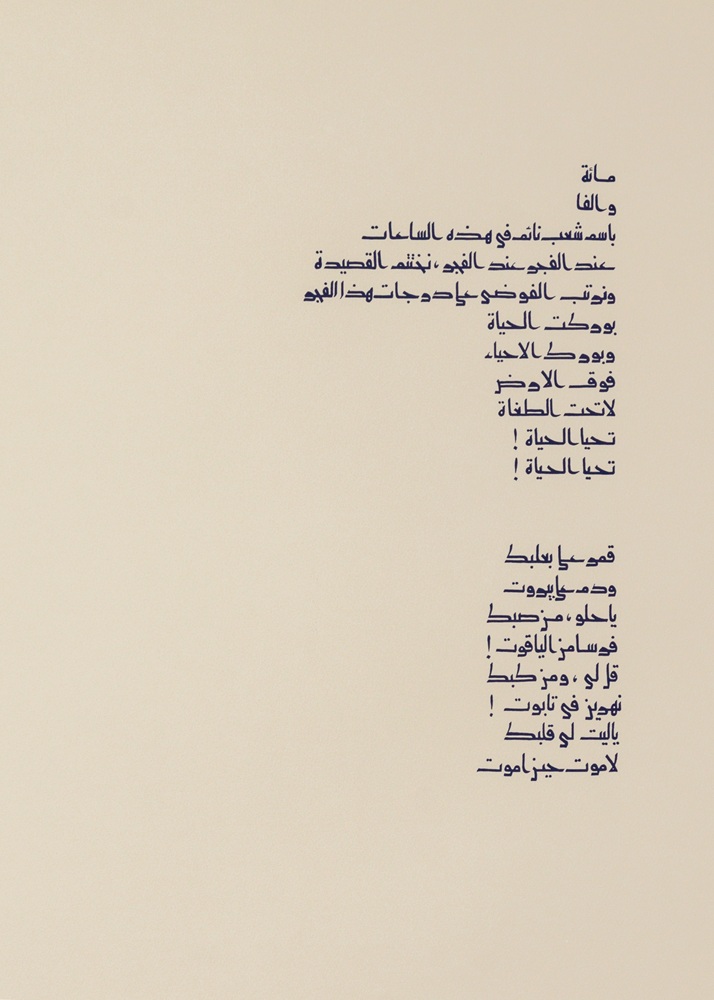 مائة
والفا
باسم شعب نائم في هذه الساعات
عند الفجر عند الفجر، نختتم القصيدة
ونرتب الفوضى على درجات هذا الفجر
بوركت الحياة
وبورك الاحياء
فوق الارض
لا تحت الطغاة
تحيا الحياة !
تحيا الحياة !
قمر على بعلبك
ودم على بيروت
يا حلو، من صبك
فرسا من الياقوت !
قل لي، ومن كبك
نهرين في تابوت !
يا ليت لي قلبك
لاموت حين اموت